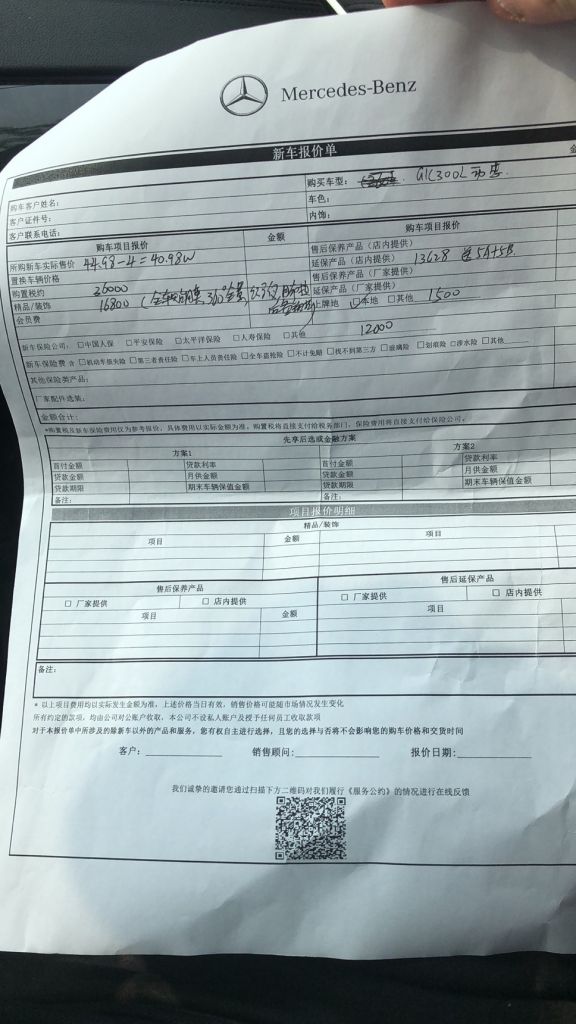 Mercedes-Benz
新车报价单
购车客户姓名：
购买车型： GLC300L 动感.
客户证件号：
车色：
客户联系电话：
内饰：
购车项目报价 金额
购车项目报价 金
所购新车实际售价 44.98-4=40.98W
售后保养产品（店内提供）
置换车辆价格
延保产品（店内提供） 13628 送5A+5B.
购置税约 26000
售后保养产品（厂家提供）
精品/装饰 16800 (全车 膜, 360全景, 记录仪,
延保产品（厂家提供）
会员费
上牌地 □本地 □其他 1500
新车保险公司：□中国人保 □平安保险 □太平洋保险 □人寿保险 □其他 12000
新车保险费 含 □机动车损失险 □第三者责任险 □车上人员责任险 □全车盗抢险 □不计免赔 □找不到第三方 □玻璃险 □划痕险 □涉水险 □其他
其他保险类产品：
厂家配件选装：
金额合计：
*购置税及新车保险费用仅为参考报价，具体费用以实际金额为准。购置税将直接支付给税务部门，保险费用将直接支付给保险公司。
先享后选或金融方案
方案1 方案2
首付金额 贷款利率 首付金额 贷款利率
贷款金额 月供金额 贷款金额 月供金额
贷款期限 期末车辆保值金额 贷款期限 期末车辆保值金额
备注： 备注：
项目报价明细
精品/装饰
项目 金额 项目
售后保养产品 售后延保产品
□ 厂家提供 □ 店内提供 □ 厂家提供 □ 店内提供
项目 金额 项目
备注：
* 以上项目费用均以实际发生金额为准，上述价格当日有效，销售价格可能随市场情况发生变化
所有约定的款项，均由公司对公账户收取，本公司不设私人账户及授予任何员工收取款项
对于本报价单中所涉及的除新车以外的产品和服务，您有权自主进行选择，且您的选择与否将不会影响您的购车价格和交付时间
客户： 销售顾问： 报价日期：
我们诚挚的邀请您通过扫描下方二维码对我们履行《服务公约》的情况进行在线反馈